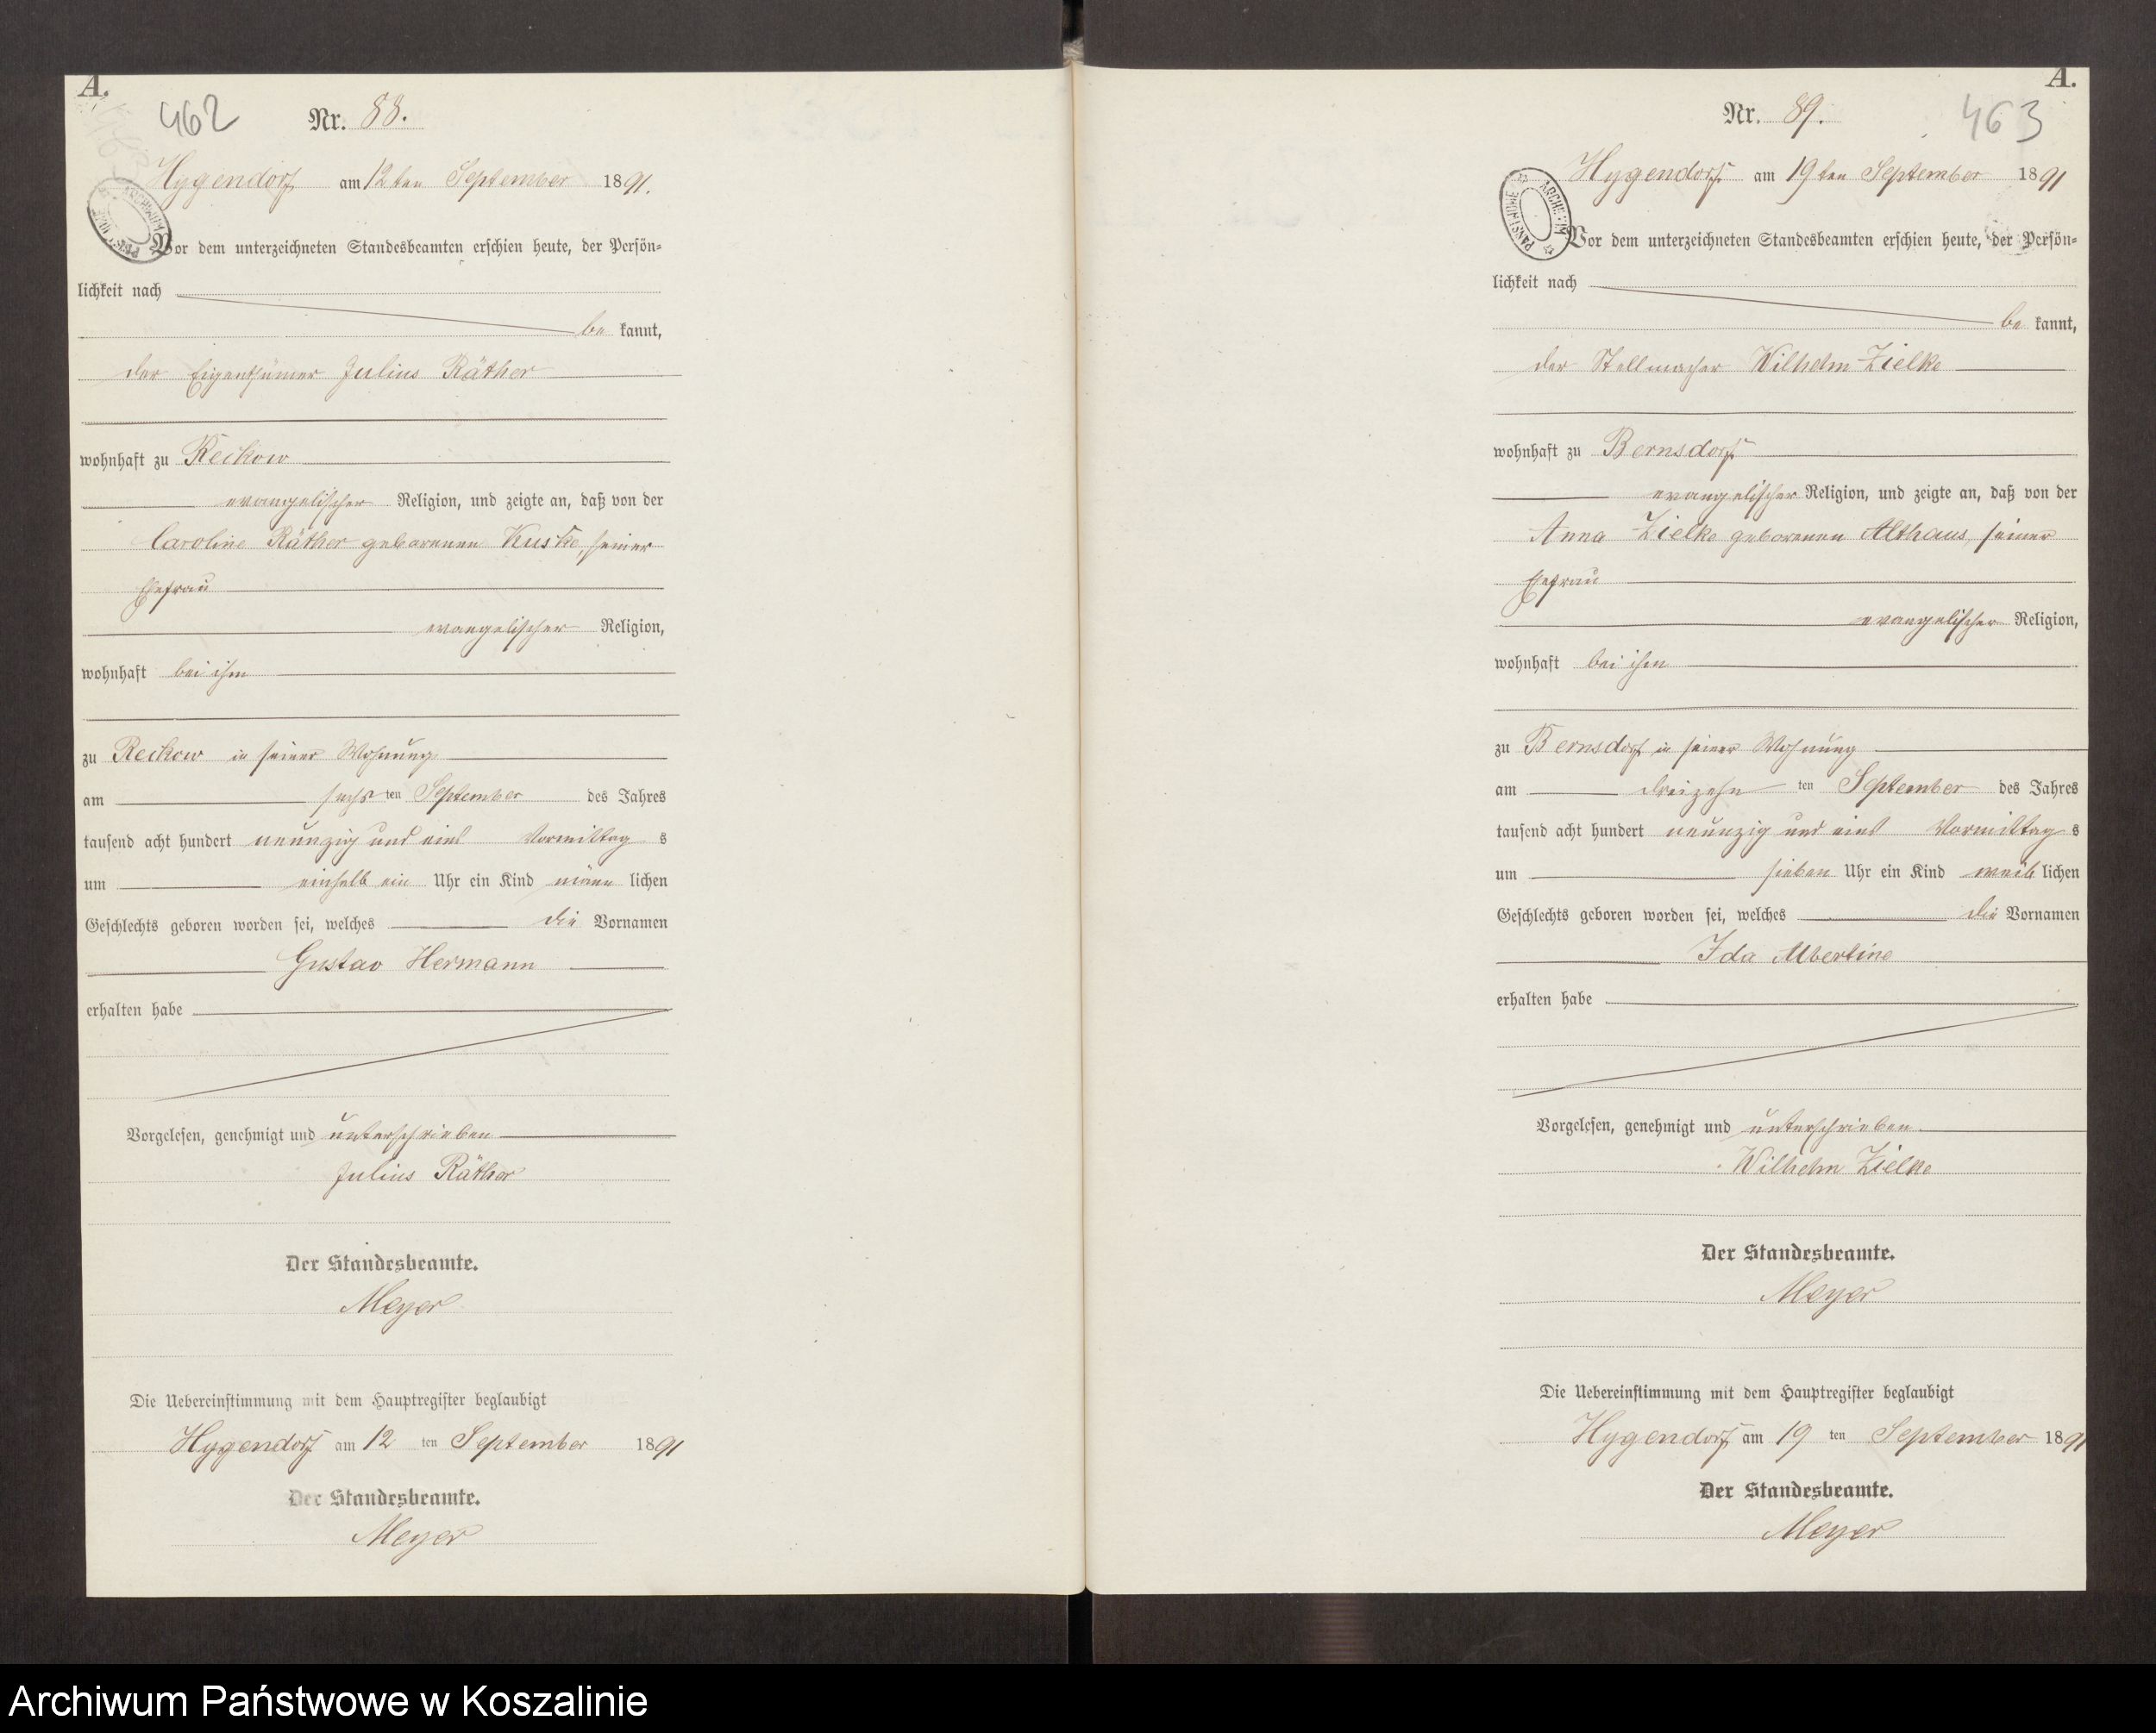 A.
462
Nr. 88.
Hygendorf am 12ten September 1891.
Vor dem unterzeichneten Standesbeamten erschien heute, der Persön-
lichkeit nach
be kannt,
der Eigenthümer Julius Räther
wohnhaft zu Reckow
evangelischer Religion, und zeigte an, daß von der
Caroline Räther geborenen Kuske, seiner
Ehefrau
evangelischer Religion,
wohnhaft bei ihm
zu Reckow in seiner Wohnung
am sechs ten September des Jahres
tausend acht hundert neunzig und eins Vormittag s
um einhalb ein Uhr ein Kind männ lichen
Geschlechts geboren worden sei, welches die Vornamen
Gustav Hermann
erhalten habe
Vorgelesen, genehmigt und unterschrieben
Julius Räther
Der Standesbeamte.
Meyer
Die Uebereinstimmung mit dem Hauptregister beglaubigt
Hygendorf am 12 ten September 1891
Der Standesbeamte.
Meyer
A.
Nr. 89.
463
Hygendorf am 19ten September 1891
Vor dem unterzeichneten Standesbeamten erschien heute, der Persön-
lichkeit nach
be kannt,
der Stellmacher Wilhelm Zielke
wohnhaft zu Bernsdorf
evangelischer Religion, und zeigte an, daß von der
Anna Zielke geborenen Althaus, seiner
Ehefrau
evangelischer Religion,
wohnhaft bei ihm
zu Bernsdorf in seiner Wohnung
am dreizehn ten September des Jahres
tausend acht hundert neunzig und eins Vormittag s
um sieben Uhr ein Kind weib lichen
Geschlechts geboren worden sei, welches die Vornamen
Ida Albertine
erhalten habe
Vorgelesen, genehmigt und unterschrieben.
Wilhelm Zielke
Der Standesbeamte.
Meyer
Die Uebereinstimmung mit dem Hauptregister beglaubigt
Hygendorf am 19 ten September 1891
Der Standesbeamte.
Meyer
Archiwum Państwowe w Koszalinie